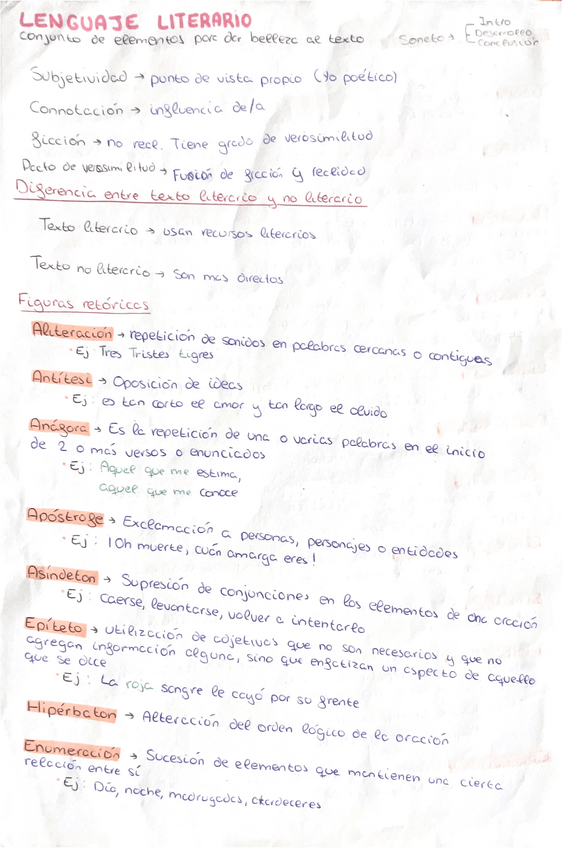 LENGUAJE LITERARIO
conjunto de elementos para dar belleza al texto
Soneto → Intro
Desarrollo
Conclusión
Subjetividad → punto de vista propio (Yo poético)
Connotación → influencia de/a
ficción → no real. Tiene grado de verosimilitud
Pacto de verosimilitud → Fusión de ficción y realidad
Diferencia entre texto literario y no literario
Texto literario → usan recursos literarios
Texto no literario → Son mas directos
Figuras retóricas
Aliteración → repetición de sonidos en palabras cercanas o contiguas
• Ej Tres Tristes tigres
Antítesi → Oposición de ideas
• Ej: es tan corto el amor y tan largo el olvido
Anáfora → Es la repetición de una o varias palabras en el inicio
de 2 o más versos o enunciados
• Ej: Aquel que me estima,
aquel que me conoce
Apóstrofe → Exclamación a personas, personajes o entidades
• Ej: ¡Oh muerte, cuán amarga eres!
Asíndeton → Supresión de conjunciones en los elementos de una oración
• Ej: Caerse, levantarse, volver a intentarlo
Epíteto → utilización de adjetivos que no son necesarios y que no
agregan información alguna, sino que enfatizan un aspecto de aquello
que se dice
• Ej: La roja sangre le cayó por su frente
Hipérbaton → Alteración del orden lógico de la oración
Enumeración → Sucesión de elementos que mantienen una cierta
relación entre sí
• Ej: Día, noche, madrugadas, atardeceres